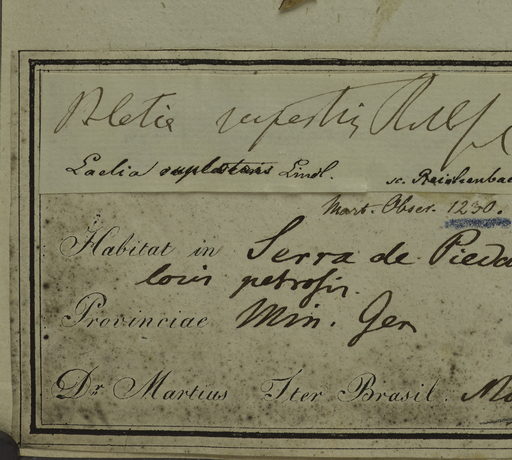 Bletia rupestris Rchb f
Laelia rupestris Lindl. sc. Reichenbac
Mart. Obser. 1230.
Habitat in Serra de Pieda
locis petrosis.
Provinciae Min. Gen
Dr. Martius Iter Brasil. Ma